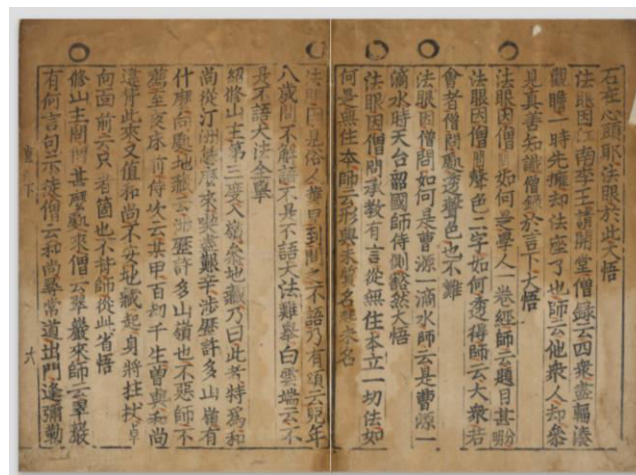 石在心頭耶法眼於此大悟
法眼因江南李王請開堂僧録云四衆盡輻湊
觀瞻一時先擁却法座了也師云他衆人却叅
見真善知識僧録於言下大悟
法眼因僧問如何是學人一卷經師云題目甚分明
法眼因僧問聲色二字如何透得師云大衆若
會者僧問處透聲色也不難
法眼因僧問如何是曹源一滴水師云是曹源一
滴水時天台韶國師侍側豁然大悟
法眼因僧問承教有言從無住本立一切法如
何是無住本師云形興未質名起未名
法眼因見俗人
八歲問不解語不是不語大法難舉白雲端云不
是不語大法全舉
紹修山主第三度入嶺叅地藏乃曰此者特爲和
尚從汀州恁麽來喫盡艱辛涉歷許多山嶺有
什麽向處地藏云涉歷許多山嶺也不惡師不
薦至夜床前侍次云某甲百劫千生曾與和尚
違背此來又值和尚不安地藏起身將拄杖卓
向面前云只者箇也不背師從此省悟
修山主問僧甚麽處來僧云翠巖來師云翠巖
有何言句示徒僧云和尚尋常道出門逢彌勒
直下
六